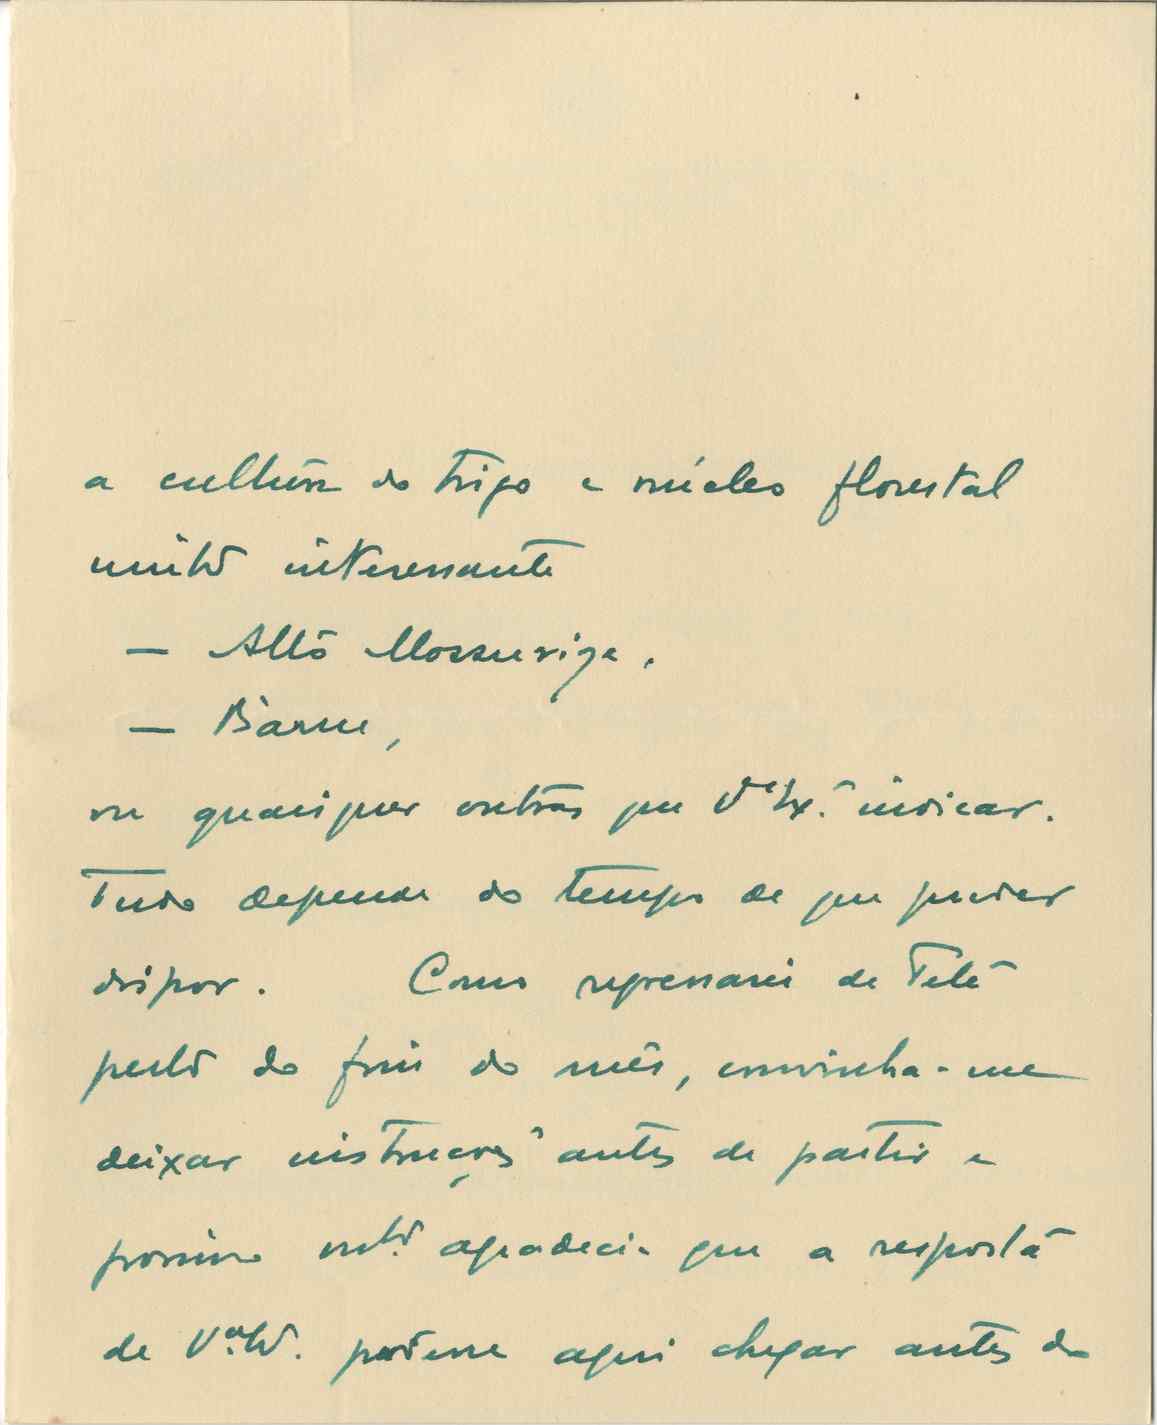 a cultura do trigo e núcleo florestal
muito interessante
— Alto Mossurize.
— Bárue,
ou quaisquer outras que V.ª Ex.ª indicar.
Tudo depende do tempo de que puder
dispor. Como regressarei de Tete
perto do fim do mês, convinha-me
deixar instruções antes de partir e
por isso mt.º agradecia que a resposta
de V.ª podesse aqui chegar antes do